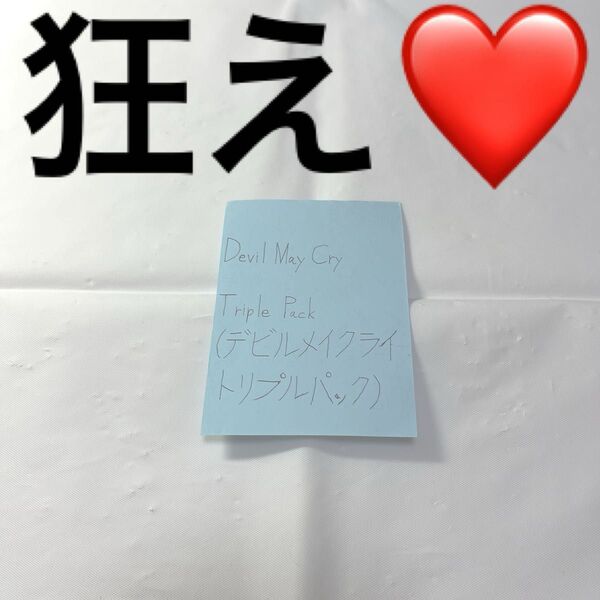 狂え❤️
Devil May Cry
Triple Pack
(デビルメイクライ
トリプルパック)